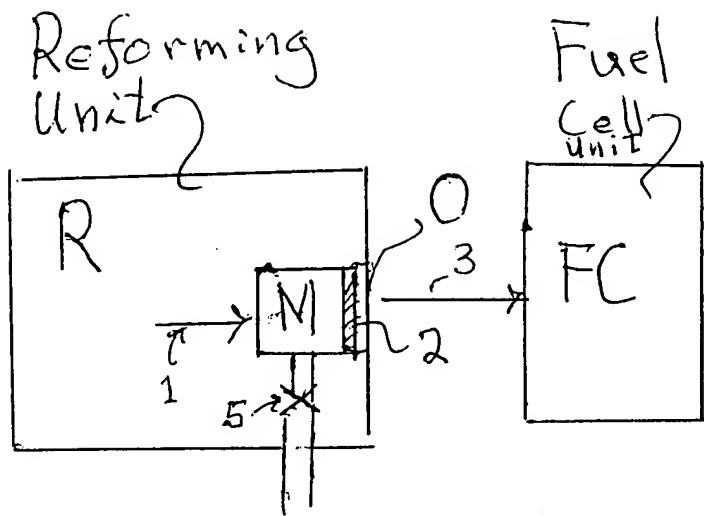 Reforming
Unit
Fuel
Cell
unit
R
O
3
FC
M
2
1
5